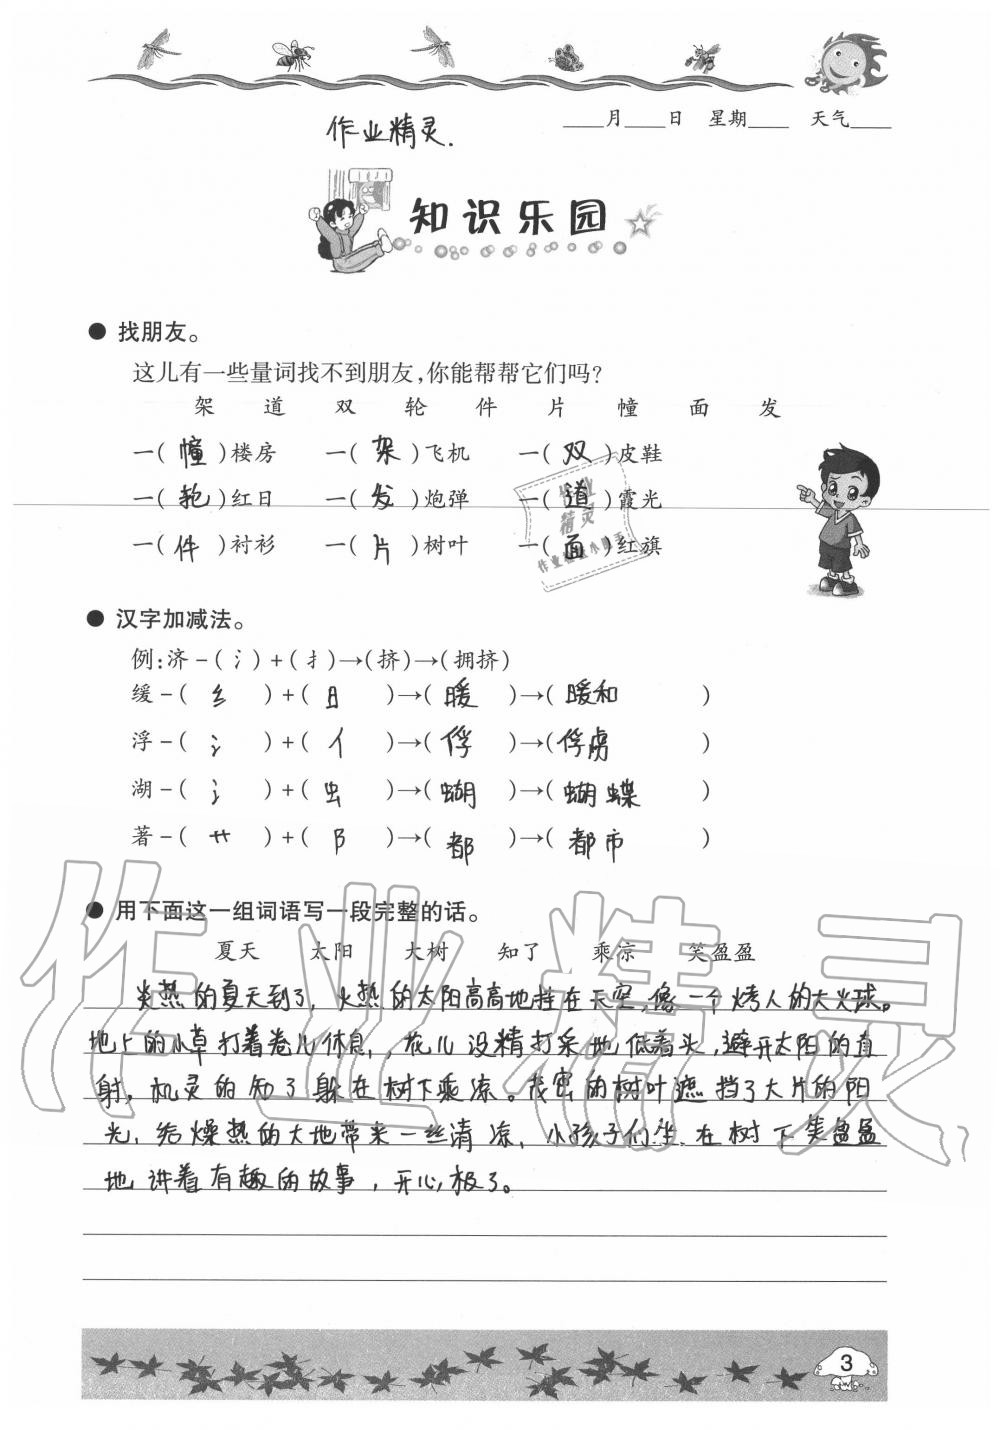 ____月____日 星期____ 天气____
作业精灵.
知识乐园
● 找朋友。
这儿有一些量词找不到朋友,你能帮帮它们吗?
架 道 双 轮 件 片 幢 面 发
一(幢)楼房 一(架)飞机 一(双)皮鞋
一(轮)红日 一(发)炮弹 一(道)霞光
一(件)衬衫 一(片)树叶 一(面)红旗
作业
精灵
● 汉字加减法。
例:济-(氵)+(扌)→(挤)→(拥挤)
缓-(纟)+(日)→(暖)→(暖和)
浮-(氵)+(亻)→(俘)→(俘虏)
湖-(氵)+(虫)→(蝴)→(蝴蝶)
著-(艹)+(阝)→(都)→(都市)
● 用下面这一组词语写一段完整的话。
夏天 太阳 大树 知了 乘凉 笑盈盈
炎热的夏天到了,火热的太阳高高地挂在天空,像一个烤人的大火球。
地上的小草打着卷儿休息,花儿没精打采地低着头,避开太阳的直
射,机灵的知了躲在树下乘凉。茂密的树叶遮挡了大片的阳
光,给燥热的大地带来一丝清凉,小孩子们坐在树下笑盈盈
地讲着有趣的故事,开心极了。
作业精灵
3